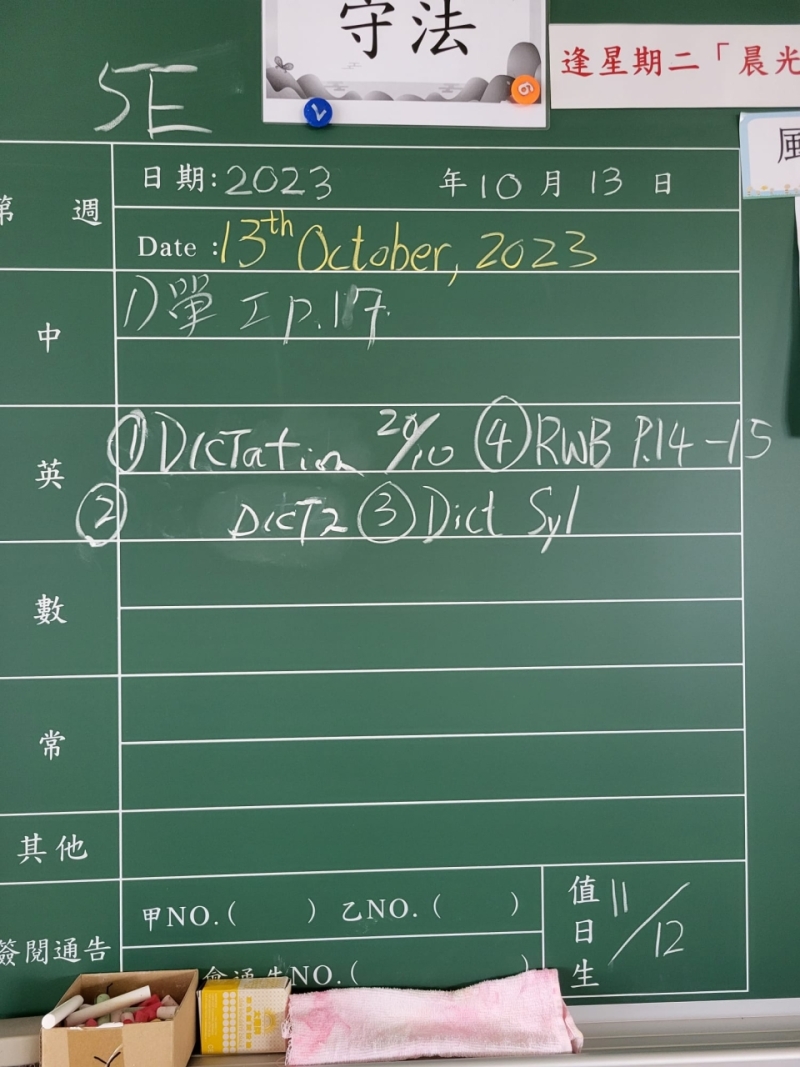 守法
逢星期二「晨光
風
5E
第 週
日期:2023 年10月13日
Date :13th October, 2023
中
1) 單工 p.17
英
① Dictation 20/10 ④ RWB P.14-15
② Dict2 ③ Dict Syl
數
常
其他
簽閱通告
甲NO.( ) 乙NO.( )
會通告NO.( )
值日生 11/12